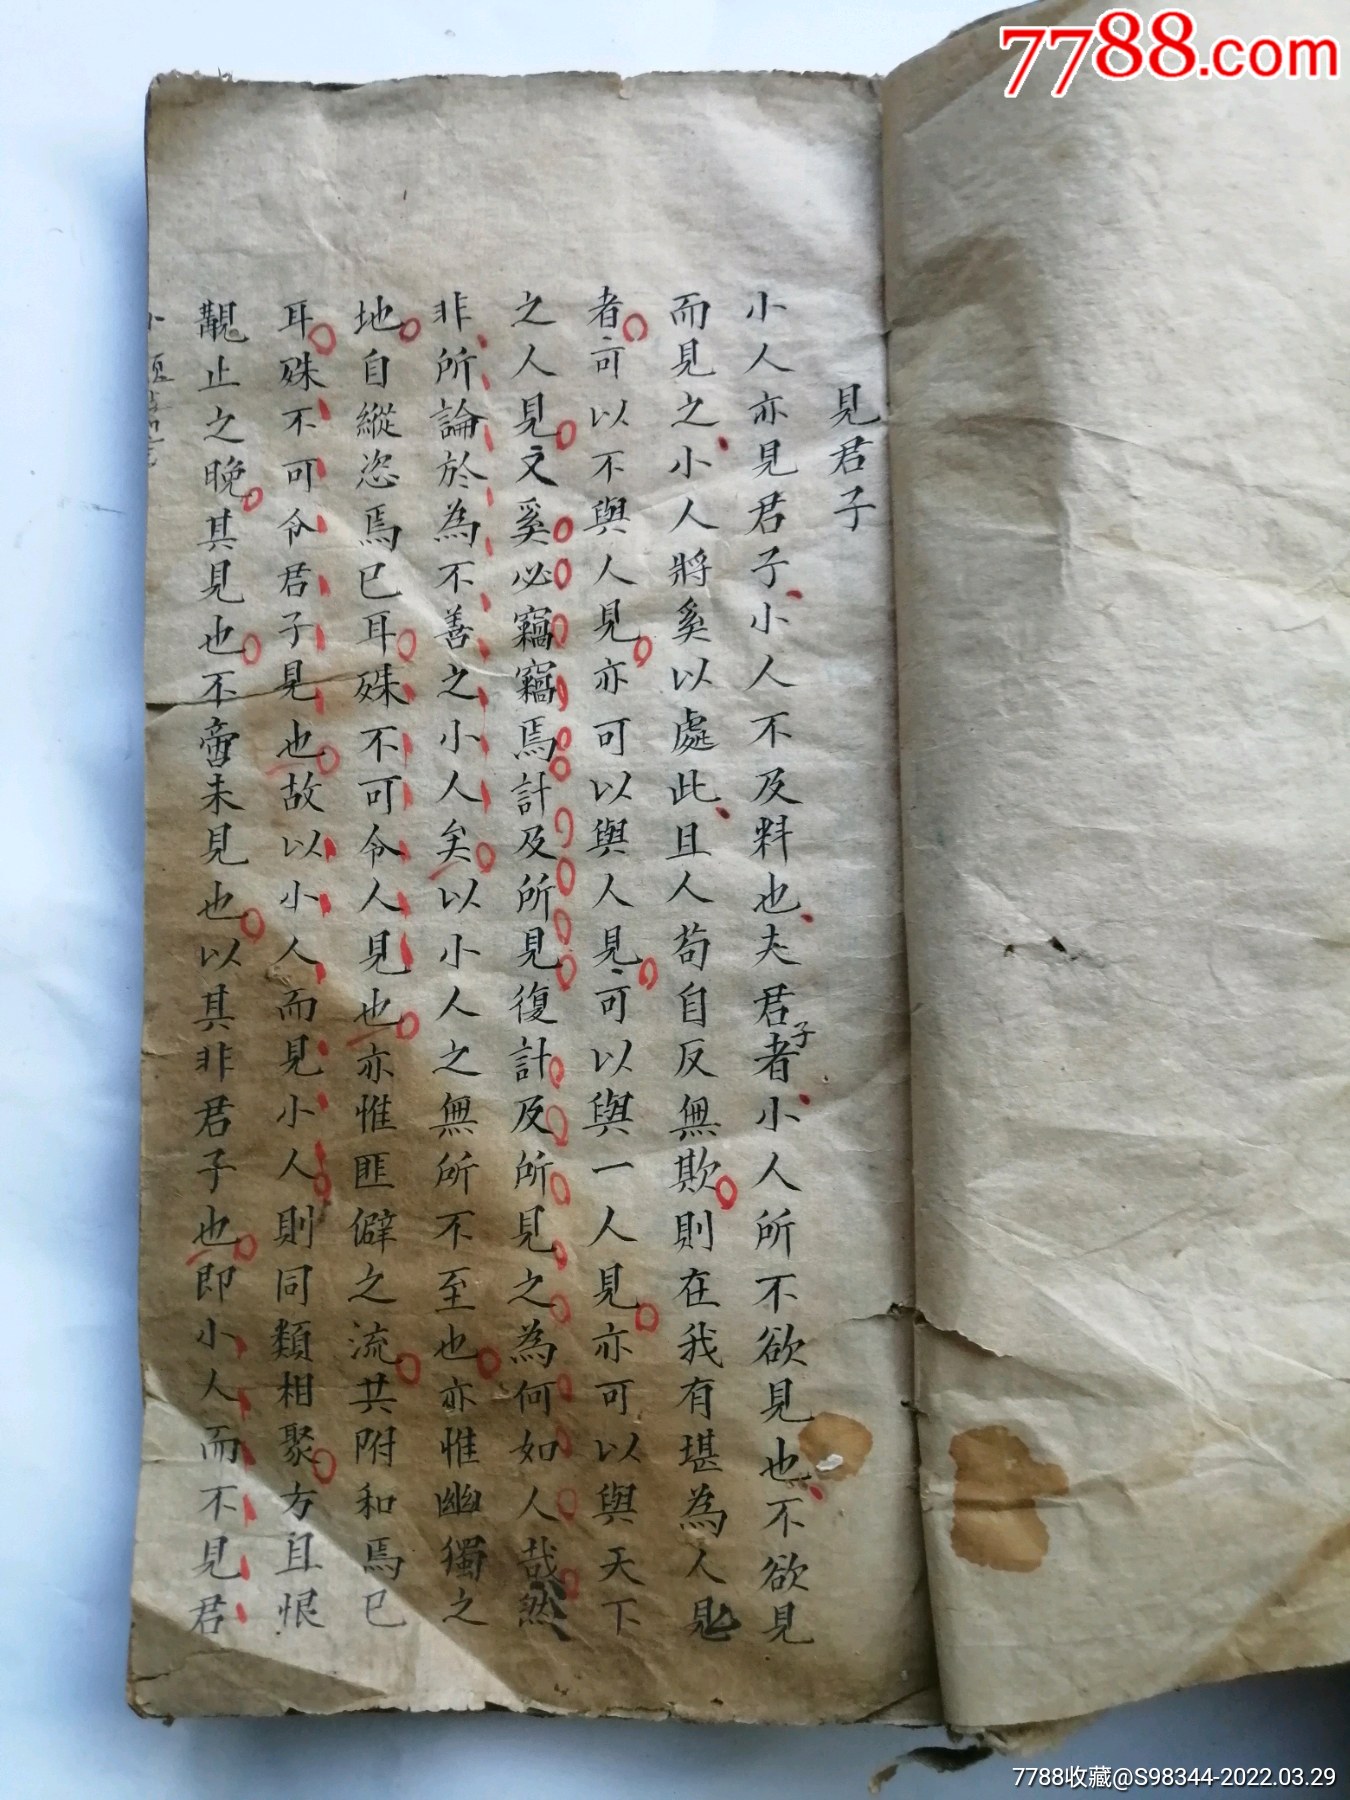 7788.com
見君子
小人亦見君子小人不及料也夫君子者小人所不欲見也不欲見
而見之小人將奚以處此且人苟自反無欺則在我有堪為人見
者可以不與人見亦可以與人見可以與一人見亦可以與天下
之人見又奚必竊竊焉計及所見復計及所見之為何如人哉然
非所論於為不善之小人矣以小人之無所不至也亦惟幽獨之
地自縱恣焉已耳殊不可令人見也亦惟匪僻之流共附和焉已
耳殊不可令君子見也故以小人而見小人則同類相聚方且恨
覯止之晚其見也不啻未見也以其非君子也即小人而不見君
7788收藏@S98344-2022.03.29